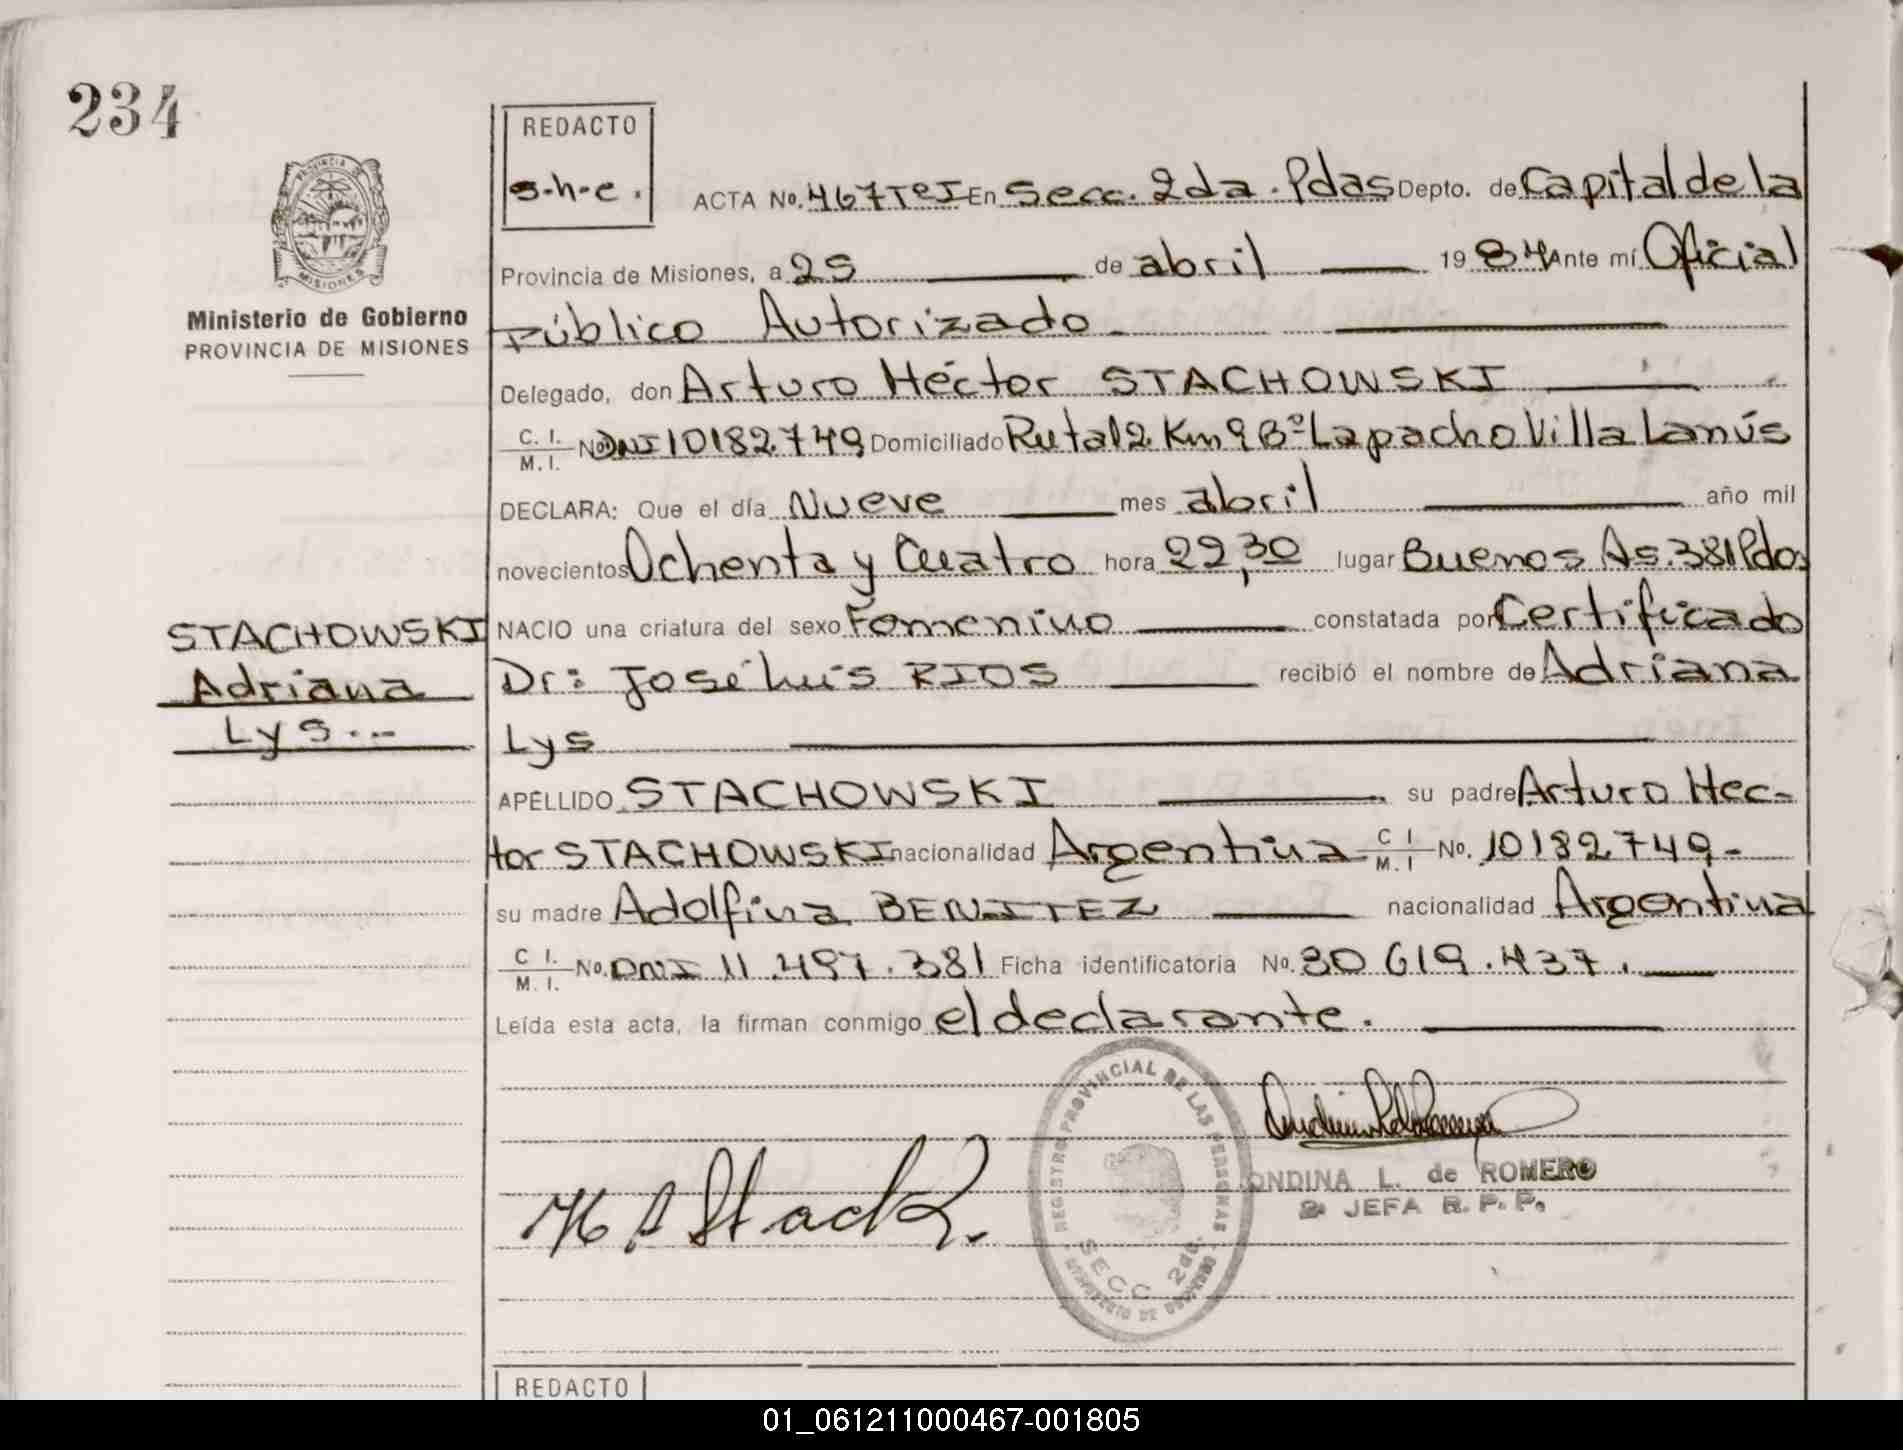 234
REDACTO
s-h-c.
ACTA No. 467 Tº I En Secc. 2da. Pdas Depto. de Capital de la
PROVINCIA DE MISIONES
Ministerio de Gobierno
PROVINCIA DE MISIONES
Provincia de Misiones, a 25 de abril 1984 Ante mí Oficial
Público Autorizado
Delegado, don Arturo Héctor STACHOWSKI
C. I. M. I. No. DNI 10182.749 Domiciliado Ruta 12 Km 9 Bº Lapacho Villa Lanús
DECLARA: Que el día Nueve mes abril año mil
novecientos Ochenta y Cuatro hora 22,30 lugar Buenos As. 381 Pdos
STACHOWSKI
Adriana
Lys...
NACIO una criatura del sexo Femenino constatada por Certificado
Dr: José Luis RIOS recibió el nombre de Adriana
Lys
APELLIDO STACHOWSKI su padre Arturo Hec-
tor STACHOWSKI nacionalidad Argentina C I M. I No. 10182.749-
su madre Adolfina BENITEZ nacionalidad Argentina
C I. M. I. No. DNI 11.497.381 Ficha identificatoria No. 30 619.437.
Leída esta acta, la firman conmigo el declarante.
REGISTRO PROVINCIAL DE LAS PERSONAS
SECC 2da.
MINISTERIO DE GOBIERNO
ONDINA L. de ROMERO
JEFA R. P. P.
REDACTO
01_061211000467-001805